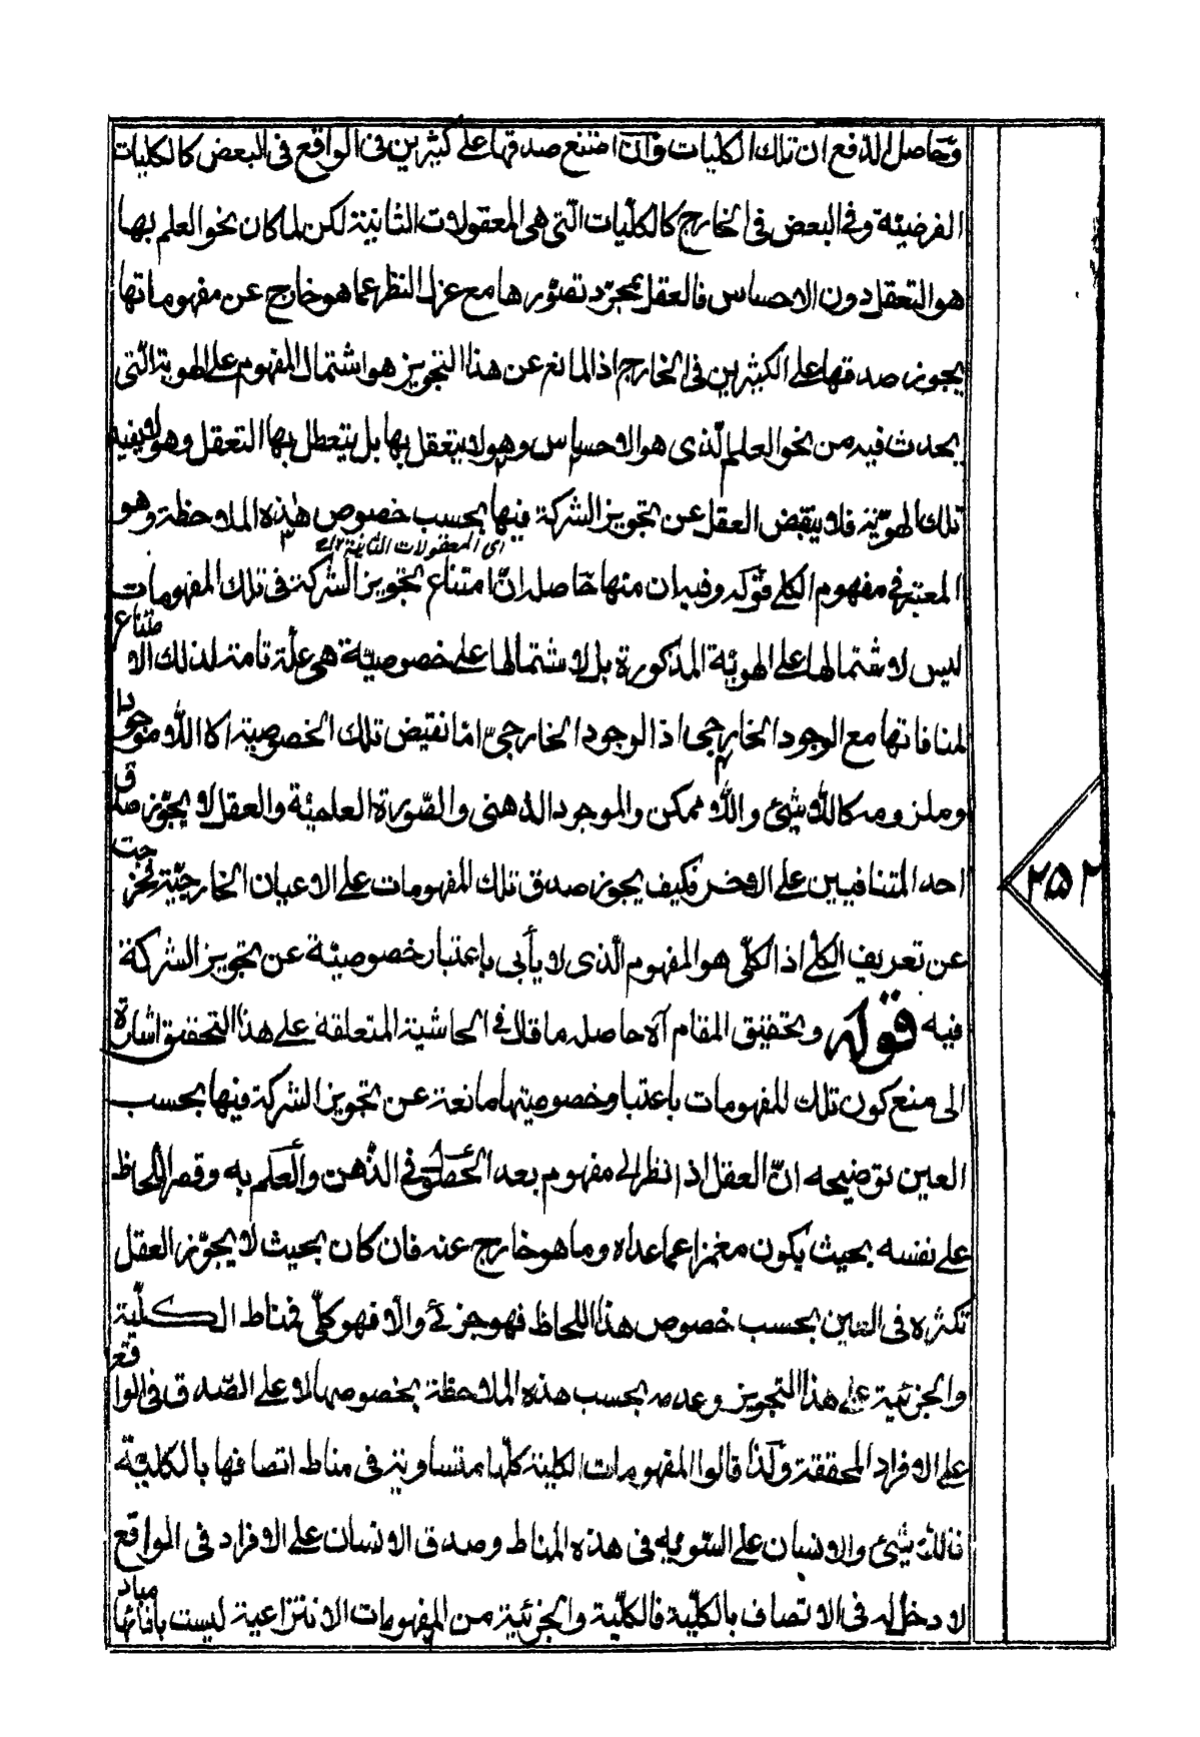 وحاصل الدفع ان تلك الكليات وان امتنع صدقها على كثيرين فى الواقع فى البعض كالكليات
الفرضيّة وفى البعض فى الخارج كالكلّيات الّتى هى المعقولات الثانية لكن لما كان نحو العلم بها
هو التعقل دون الاحساس فالعقل بمجرّد تصوّرها مع عزل النظر عما هو خارج عن مفهوماتها
يجوز صدقها على الكثيرين فى الخارج اذ المانع عن هذا التجويز هو اشتمال المفهوم على الهوية الّتى
يحدث فيه من نحو العلم الّذى هو الاحساس وهو لا يتعقل بها بل يتعطل بها التعقل وهو لا يفيد
تلك الهويّة فلا ينقبض العقل عن تجويز الشركة فيها بحسب خصوص هذه الملاحظة وهو
اى المعقولات الثانية ١٢
المعتبر فى مفهوم الكلى قوله وفيه ان منها حاصله انّ امتناع تجويز الشركة فى تلك المفهومات
ليس لاشتمالها على الهويّة المذكورة بل لاشتمالها على خصوصيّة هى علّة تامة لذلك الامتناع
لمنافاتها مع الوجود الخارجى اذ الوجود الخارجىّ امّا نقيض تلك الخصوصية كاللا موجود
وملزومه كاللا شئ واللا ممكن والموجود الذهنى والصّورة العلميّة والعقل لا يجوّز صدق
احد المتنافيين على الاخر فكيف يجوز صدق تلك المفهومات على الاعيان الخارجيّة فخرجت
عن تعريف الكلّى اذ الكلّى هو المفهوم الّذى لا يأبى باعتبار خصوصيّة عن تجويز الشركة
فيه قوله وتحقيق المقام آه حاصله ما قال فى الحاشية المتعلقة على هذا التحقيق اشارة
الى منع كون تلك المفهومات باعتبار خصوصيتها مانعة عن تجويز الشركة فيها بحسب
العين توضيحه انّ العقل اذا نظر الى مفهوم بعد الحصول فى الذّهن والعلم به وقصر اللحاظ
على نفسه بحيث يكون مغمزا عما عداه وما هو خارج عنه فان كان بحيث لا يجوّز العقل
تكثره فى العين بحسب خصوص هذا اللحاظ فهو جزئى والا فهو كلّى فمناط الكلّية
والجزئية على هذا التجويز وعدمه بحسب هذه الملاحظة بخصوصها لا على الصّدق فى الواقع
على الافراد المحققة وكذا قالوا المفهومات الكلية كلّها متساوية فى مناط اتصافها بالكليّة
فاللا شئ والانسان على السّوية فى هذه المناط وصدق الانسان على الافراد فى الواقع
لا دخل له فى الاتصاف بالكلّية فالكلّية والجزئيّة من المفهومات الانتزاعية ليست بافائها
٢٥٢